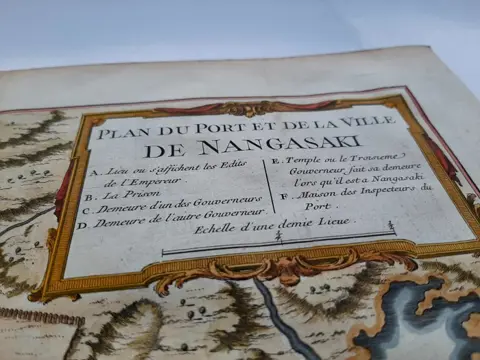 PLAN DU PORT ET DE LA VILLE
DE NANGASAKI
A. Lieu ou s'affichent les Edits
de l'Empereur.
B. La Prison
C. Demeure d'un des Gouverneurs
D. Demeure de l'autre Gouverneur.
E. Temple ou le Troisieme
Gouverneur fait sa demeure
lors qu'il est a Nangasaki
F. Maison des Inspecteurs du
Port.
Echelle d'une demie Lieue.